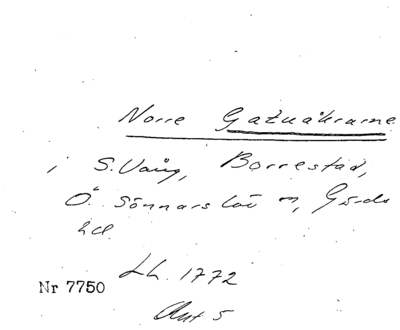 Norre Gatuåkrarne
i S. Vång, Borrestad,
Ö. Sönnarslöv sn, Gärds
hd.
Lh. 1772
Nr 7750
Akt 5